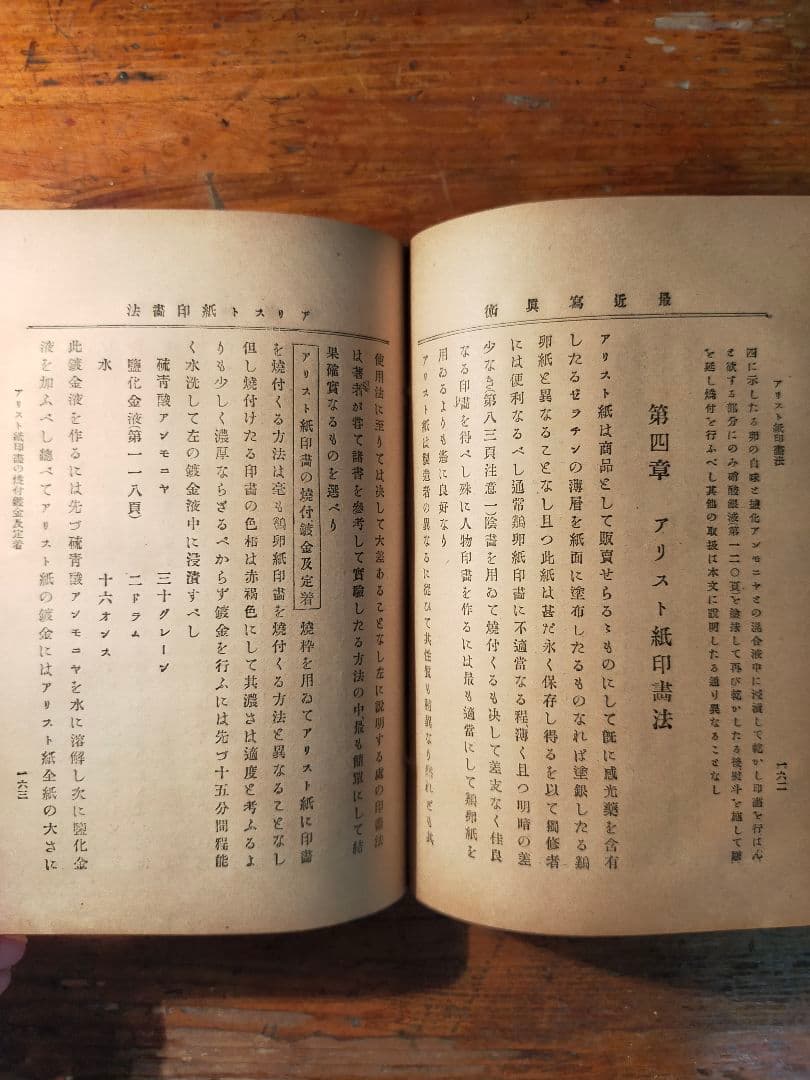 最近寫眞術
四に示したる卵の白味と鹽化アンモニヤとの混合液中に浸漬して乾かし印畫を行はんと
欲する部分にのみ硝酸銀液第一二〇頁を塗沫して再び乾かしたる後熨斗を
を延し燒付を行ふべし其他の取扱は本文に說明したる通り異なることなし
第四章 アリスト紙印畫法
アリスト紙は商品として販賣せらるゝものにして旣に感光藥を含有
したるゼラチンの薄層を紙面に塗布したるものなれば塗銀したる鷄
卵紙と異なることなし且つ此紙は甚だ永く保存し得るを以て獨修者
には便利なるべし通常鷄卵紙印畫に不適當なる程薄く且つ明暗の差
少なき第八三頁注意一)陰畫を用ゐて燒付くるも決して差支なく佳良
なる印畫を得べし殊に人物印畫を作るには最も適當にして鷄卵紙を
用ゐるよりも遙に良好なり
アリスト紙は製造者の異なるに從ひて其性質も稍異なり然れども其
アリスト紙印畫法
一六二
アリスト紙印畫法
使用法に至りては決して大差あることなし左に說明する處の印畫法
は著者が嘗て諸書を參考して實驗したる方法の中、最も簡單にして結
果確實なるものを選べり
アリスト紙印畫の燒付鍍金及定着 燒枠を用ゐてアリスト紙に印畫
を燒付くる方法は毫も鷄卵紙印畫を燒付くる方法と異なることなし
但し燒付けたる印畫の色相は赤褐色にして其濃さは適度と考ふるよ
りも少しく濃厚ならざるべからず鍍金を行ふには先づ十五分間程能
く水洗して左の鍍金液中に浸漬すべし
硫靑酸アンモニヤ 三十グレーン
鹽化金液(第一一八頁) 二ドラム
水 十六オンス
此鍍金液を作るには先づ硫靑酸アンモニヤを水に溶解し次に鹽化金
液を加ふべし總べてアリスト紙の鍍金にはアリスト紙全紙の大さに
アリスト紙印畫の燒付鍍金及定着
一六三